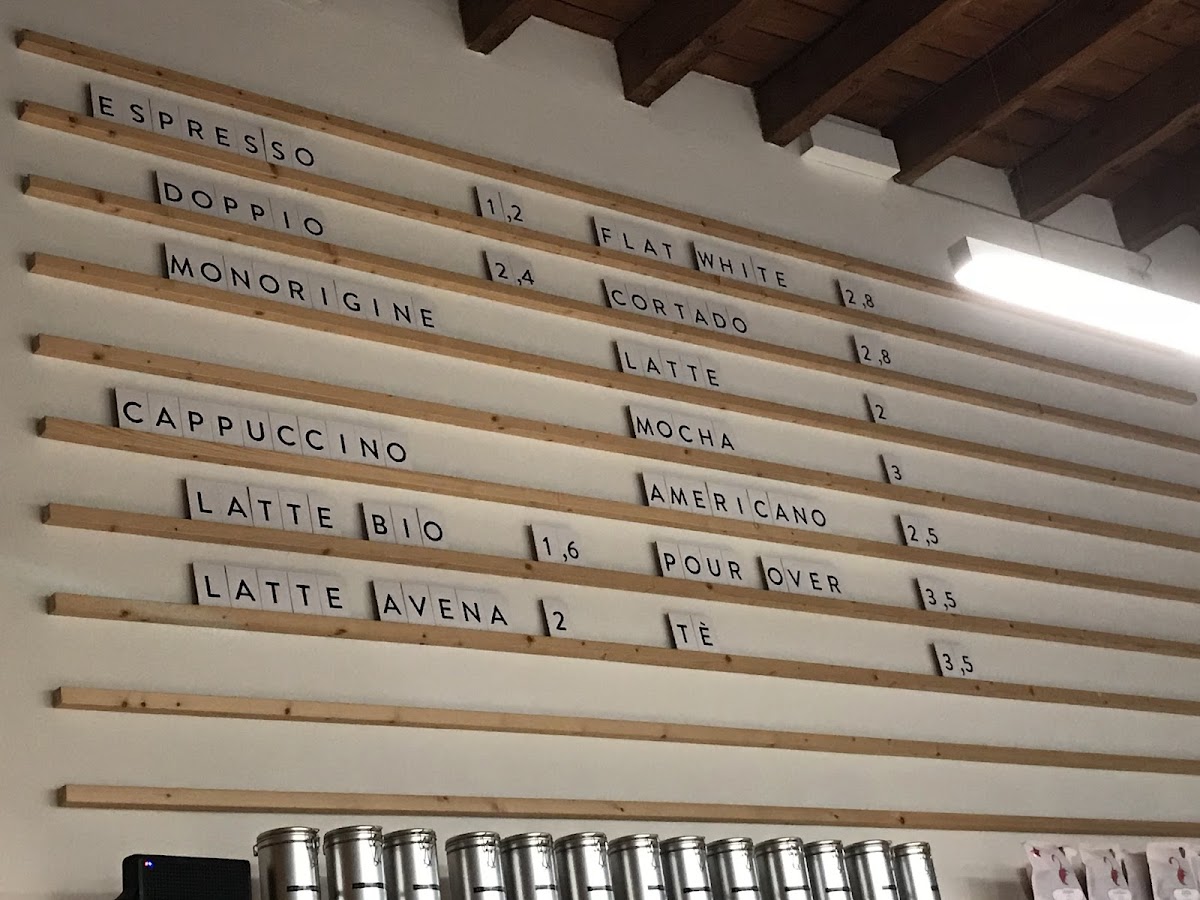 ESPRESSO 1,2 FLAT WHITE 2,8
DOPPIO 2,4 CORTADO 2,8
MONORIGINE LATTE 2
MOCHA 3
CAPPUCCINO AMERICANO 2,5
LATTE BIO 1,6 POUR OVER 3,5
LATTE AVENA 2 TÈ 3,5